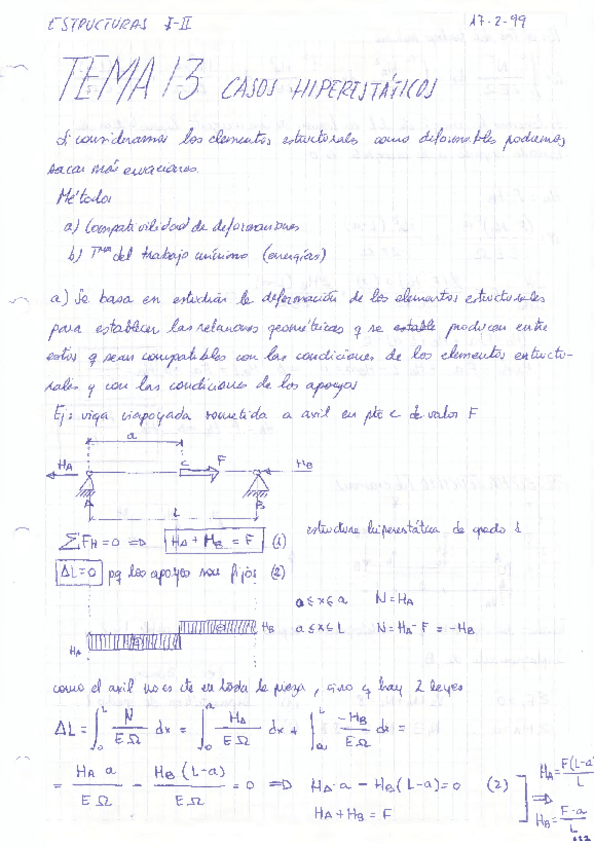 ESTRUCTURAS I-II 17-2-99
TEMA 13 CASOS HIPERESTÁTICOS
Si consideramos los elementos estructurales como deformables podemos
sacar más ecuaciones.
Método
a) Compatibilidad de deformaciones
b) Tma del trabajo mínimo (energías)
a) Se basa en estudiar la deformación de los elementos estructurales
para establecer las relaciones geométricas q se estable producen entre
estos q sean compatibles con las condiciones de los elementos estructu-
rales y con las condiciones de los apoyos
Ej: viga biapoyada sometida a axil en pto c de valor F
a
HA C F HB
A B
L
ΣFH=0 => HA + HB = F (1) estructura hiperestática de grado 1
ΔL=0 pq los apoyos son fijos (2)
a≤x≤a N=HA
HB a≤x≤L N=HA-F = -HB
HA
como el axil no es cte en toda la pieza, sino q hay 2 leyes
ΔL = ∫₀ᴸ N/EΩ dx = ∫₀ᵃ HA/EΩ dx + ∫ₐᴸ -HB/EΩ dx =
= HA a/EΩ - HB (L-a)/EΩ = 0 => HA·a - HB(L-a)=0 (2) => HA= F(L-a)/L
HA+HB = F HB= F·a/L